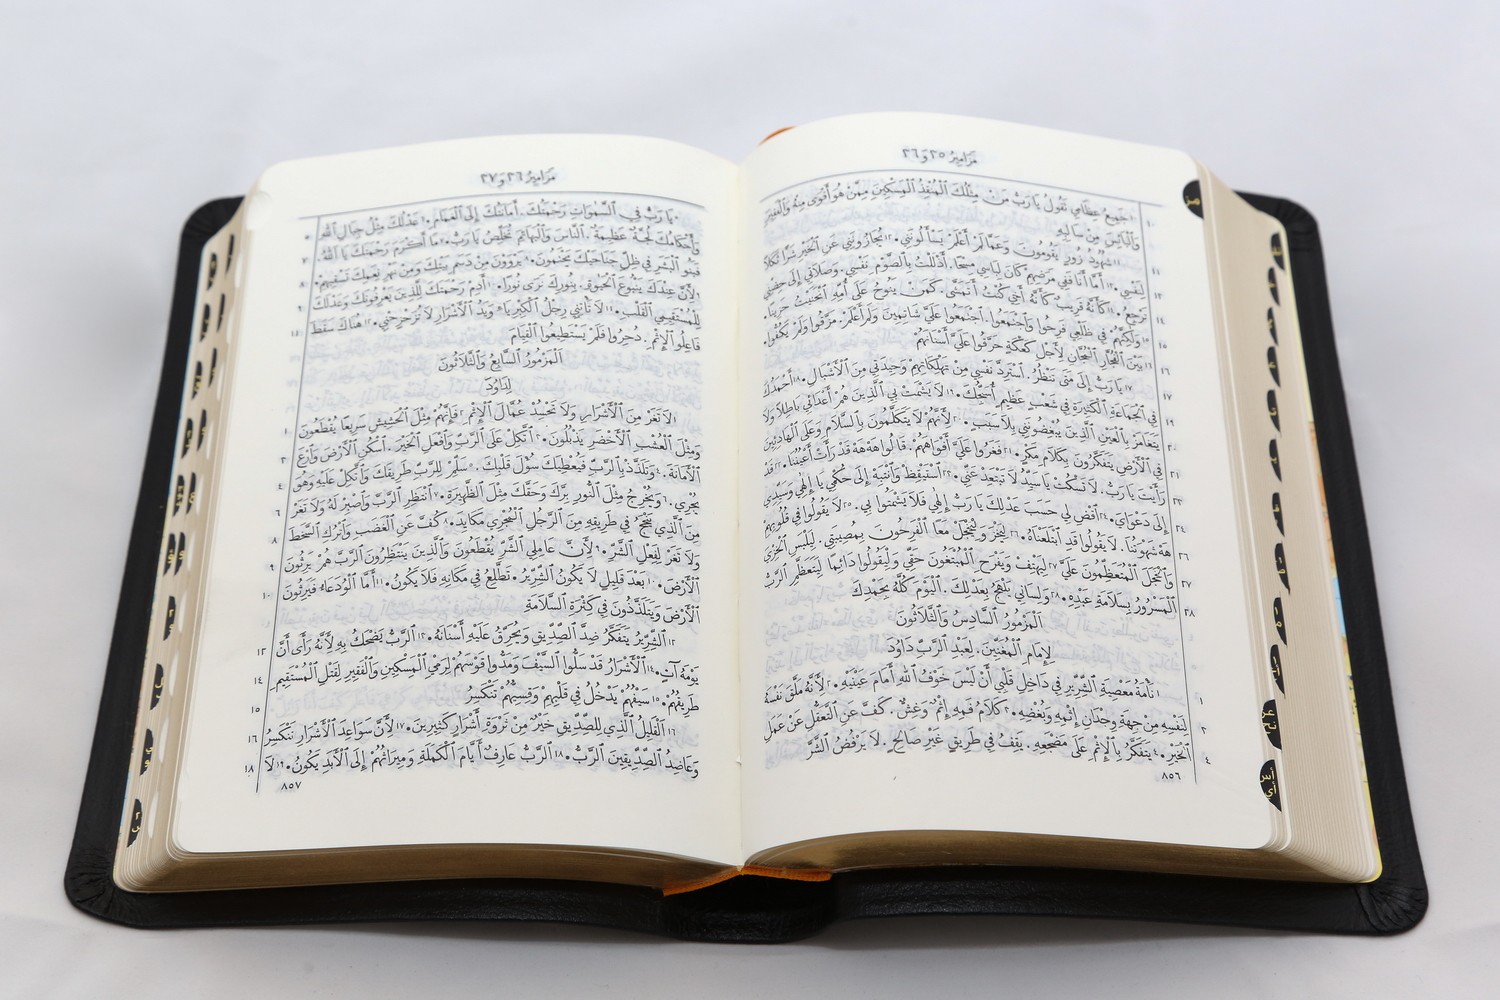 مزامير ٣٥ و٣٦
١٠ جميع عظامي تقول يا رب من مثلك المنقذ المسكين ممن هو أقوى منه والفقير
والبائس من سالبه
١١ شهود زور يقومون وعما لم أعلم يسألونني. ١٢ يجازونني عن الخير شرا ثكلا
لنفسي. ١٣ أما أنا ففي مرضهم كان لباسي مسحا. أذللت بالصوم نفسي. وصلاتي إلى حضني
ترجع. ١٤ كأنه قريب كأنه أخي كنت أتمشى. كمن ينوح على أمه انحنيت حزينا.
١٥ ولكنهم في ظلعي فرحوا واجتمعوا. اجتمعوا علي شاتمين ولم أعلم. مزقوا ولم يكفوا.
١٦ بين الفجار المجان لأجل كعكة حرقوا علي أسنانهم
١٧ يا رب إلى متى تنظر. استرد نفسي من تهلكاتهم وحيدتي من الأشبال. ١٨ أحمدك
في الجماعة الكثيرة في شعب عظيم أسبحك. ١٩ لا يشمت بي الذين هم أعدائي باطلا ولا
يتغامز بالعين الذين يبغضونني بلا سبب. ٢٠ لأنهم لا يتكلمون بالسلام وعلى الهادئين
في الأرض يتفكرون بكلام مكر. ٢١ فغروا علي أفواههم. قالوا هه هه قد رأت أعيننا. ٢٢ قد
رأيت يا رب. لا تسكت يا سيد لا تبتعد عني. ٢٣ استيقظ وانتبه إلى حكمي يا إلهي وسيدي
إلى دعواي. ٢٤ اقض لي حسب عدلك يا رب إلهي فلا يشمتوا بي. ٢٥ لا يقولوا في قلوبهم
هه شهوتنا. لا يقولوا قد ابتلعناه. ٢٦ ليخز وليخجل معا الفرحون بمصيبتي. ليلبس الخزي
والخجل المتعظمون علي. ٢٧ ليهتف ويفرح المبتغون حقي وليقولوا دائما ليتعظم الرب
المسرور بسلامة عبده. ٢٨ ولساني يلهج بعدلك. اليوم كله بحمدك
المزمور السادس والثلاثون
لإمام المغنين. لعبد الرب داود
١ نأمة معصية الشرير في داخل قلبي أن ليس خوف الله أمام عينيه. ٢ لأنه ملق نفسه
لنفسه من جهة وجدان إثمه وبغضه. ٣ كلام فمه إثم وغش. كف عن التعقل عن عمل
الخير. ٤ يتفكر بالإثم على مضجعه. يقف في طريق غير صالح. لا يرفض الشر
٨٥٦
مزامير ٣٦ و٣٧
٥ يا رب في السموات رحمتك. أمانتك إلى الغمام. ٦ عدلك مثل جبال الله
وأحكامك لجة عظيمة. الناس والبهائم تخلص يا رب. ٧ ما أكرم رحمتك يا الله.
فبنو البشر في ظل جناحيك يحتمون. ٨ يروون من دسم بيتك ومن نهر نعمك تسقيهم.
٩ لأن عندك ينبوع الحيوة. بنورك نرى نورا. ١٠ أدم رحمتك للذين يعرفونك وعدلك
للمستقيمي القلب. ١١ لا تأتني رجل الكبرياء ويد الأشرار لا تزحزحني. ١٢ هناك سقط
فاعلو الإثم. دحروا فلم يستطيعوا القيام
المزمور السابع والثلاثون
لداود
١ لا تغر من الأشرار ولا تحسد عمال الإثم. ٢ فإنهم مثل الحشيش سريعا يقطعون
ومثل العشب الأخضر يذبلون. ٣ اتكل على الرب وافعل الخير. اسكن الأرض وارع
الأمانة. ٤ وتلذذ بالرب فيعطيك سؤل قلبك. ٥ سلم للرب طريقك واتكل عليه وهو
يجري. ٦ ويخرج مثل النور برك وحقك مثل الظهيرة. ٧ انتظر الرب واصبر له ولا تغر
من الذي ينجح في طريقه من الرجل المجري مكايد. ٨ كف عن الغضب واترك السخط
ولا تغر لفعل الشر. ٩ لأن عاملي الشر يقطعون والذين ينتظرون الرب هم يرثون
الأرض. ١٠ بعد قليل لا يكون الشرير. تطلع في مكانه فلا يكون. ١١ أما الودعاء فيرثون
الأرض ويتلذذون في كثرة السلامة
١٢ الشرير يتفكر ضد الصديق ويحرق عليه أسنانه. ١٣ الرب يضحك به لأنه رأى أن
يومه آت. ١٤ الأشرار قد سلوا السيف ومدوا قوسهم لرمي المسكين والفقير لقتل المستقيم
طريقهم. ١٥ سيفهم يدخل في قلبهم وقسيهم تنكسر
١٦ القليل الذي للصديق خير من ثروة أشرار كثيرين. ١٧ لأن سواعد الأشرار تنكسر
وعاضد الصديقين الرب. ١٨ الرب عارف أيام الكملة وميراثهم إلى الأبد يكون. ١٩ لا
٨٥٧